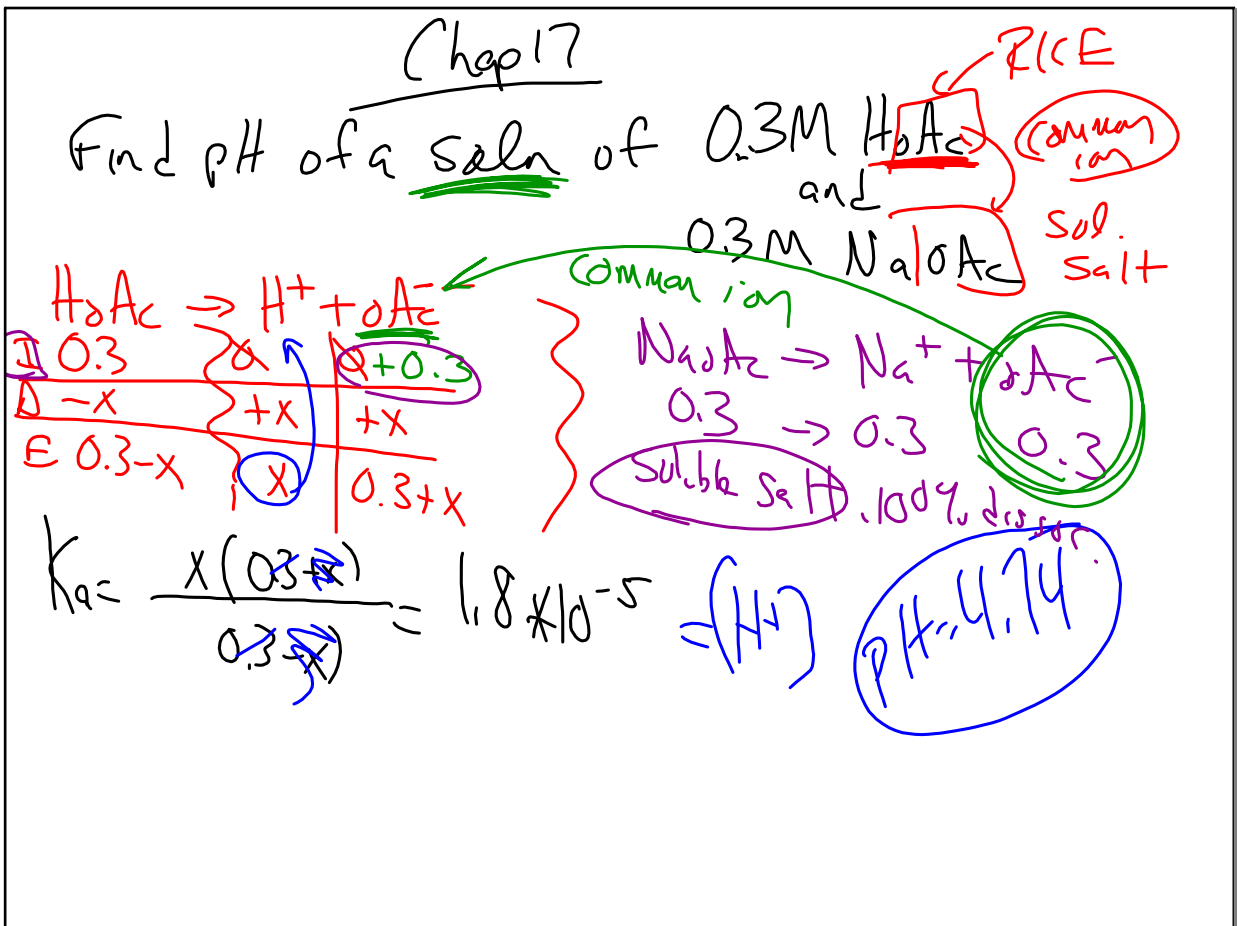 Chap 17
RICE
Find pH of a soln of 0.3M HOAc
common ion
and
0.3M NaOAc
sol. salt
common ion
HOAc → H+ + OAc-
I 0.3 0 0 +0.3
Δ -x +x +x
E 0.3-x x 0.3+x
NaOAc → Na+ + OAc-
0.3 → 0.3 0.3
Soluble Salt .100%
Ka= x(0.3+x) / 0.3-x) = 1.8*10-5 =(H+)
pH=4.74